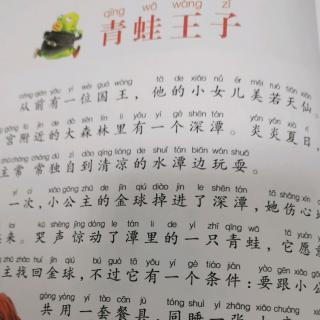 qīng wā wáng zǐ
青蛙王子
cóng qián yǒu yí wèi guó wáng tā de xiǎo nǚ ér měi ruò tiān xiān
从前有一位国王,他的小女儿美若天仙。
gōng fù jìn de dà sēn lín lǐ yǒu yí gè shēn tán yán yán xià rì
宫附近的大森林里有一个深潭。炎炎夏日,
zhǔ cháng cháng dú zì dào qīng liáng de shuǐ tán biān wán shuǎ
主常常独自到清凉的水潭边玩耍。
yí cì xiǎo gōng zhǔ de jīn qiú diào jìn le shēn tán tā shāng xīn
一次,小公主的金球掉进了深潭,她伤心
lái kū shēng jīng dòng le tán lǐ de yì zhī qīng wā tā yuàn
来。哭声惊动了潭里的一只青蛙,它愿
zhǎo huí jīn qiú bú guò tā yǒu yí gè tiáo jiàn yào gēn xiǎo gōng
主找回金球,不过它有一个条件:要跟小公
gòng yòng yí tào cān jù tóng shuì yì zhāng xiǎo chuáng
共用一套餐具,同睡一张小